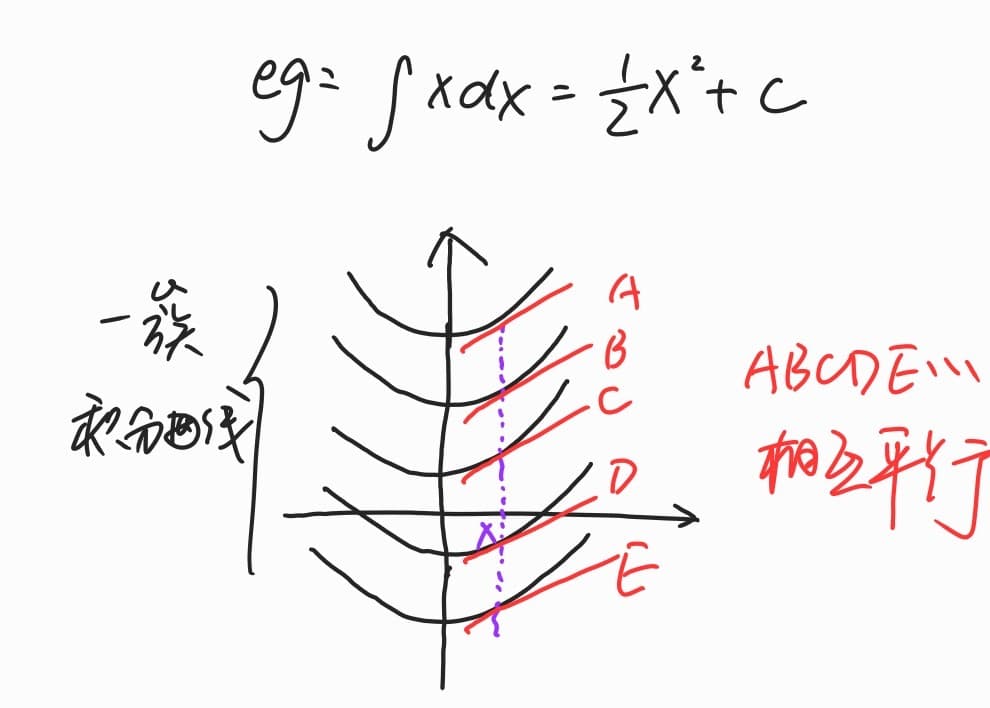 eg: ∫xdx = 1/2 x² + C
一族
积分曲线
A
B
C
D
E
x
ABCDE…
相互平行